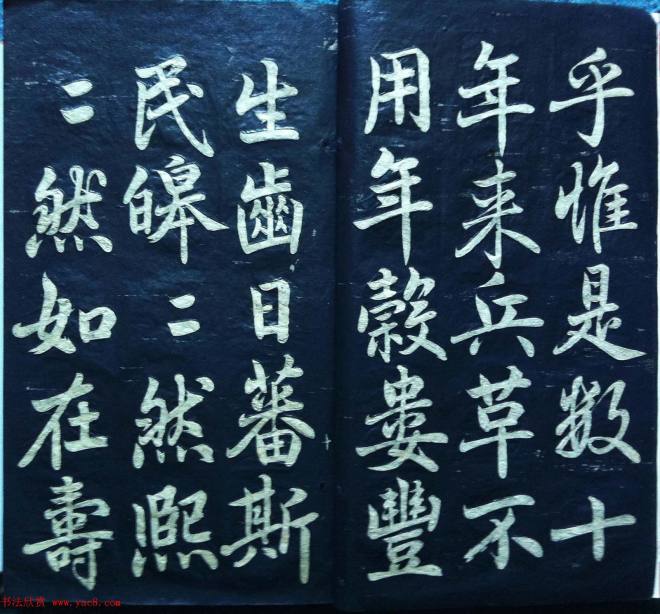 乎惟是数十
年来兵草不
用年穀娄豐
生齒日蕃斯
民皞二然熙
二然如在壽
书法欣赏 www.yac8.com